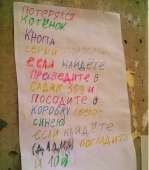 ПОТЕРЯЛСЯ
КОТЕНОК
КНОПА
СЕРЫЙ
ЕСЛИ НАЙДЕТЕ
ПРИВЕДИТЕ В
САДИК 369 И
ПОСАДИТЕ В
КОРОБКУ
СИНЕЮ
ЕСЛИ НАЙДЕТЕ
(ДАДИМ)
И 10Р